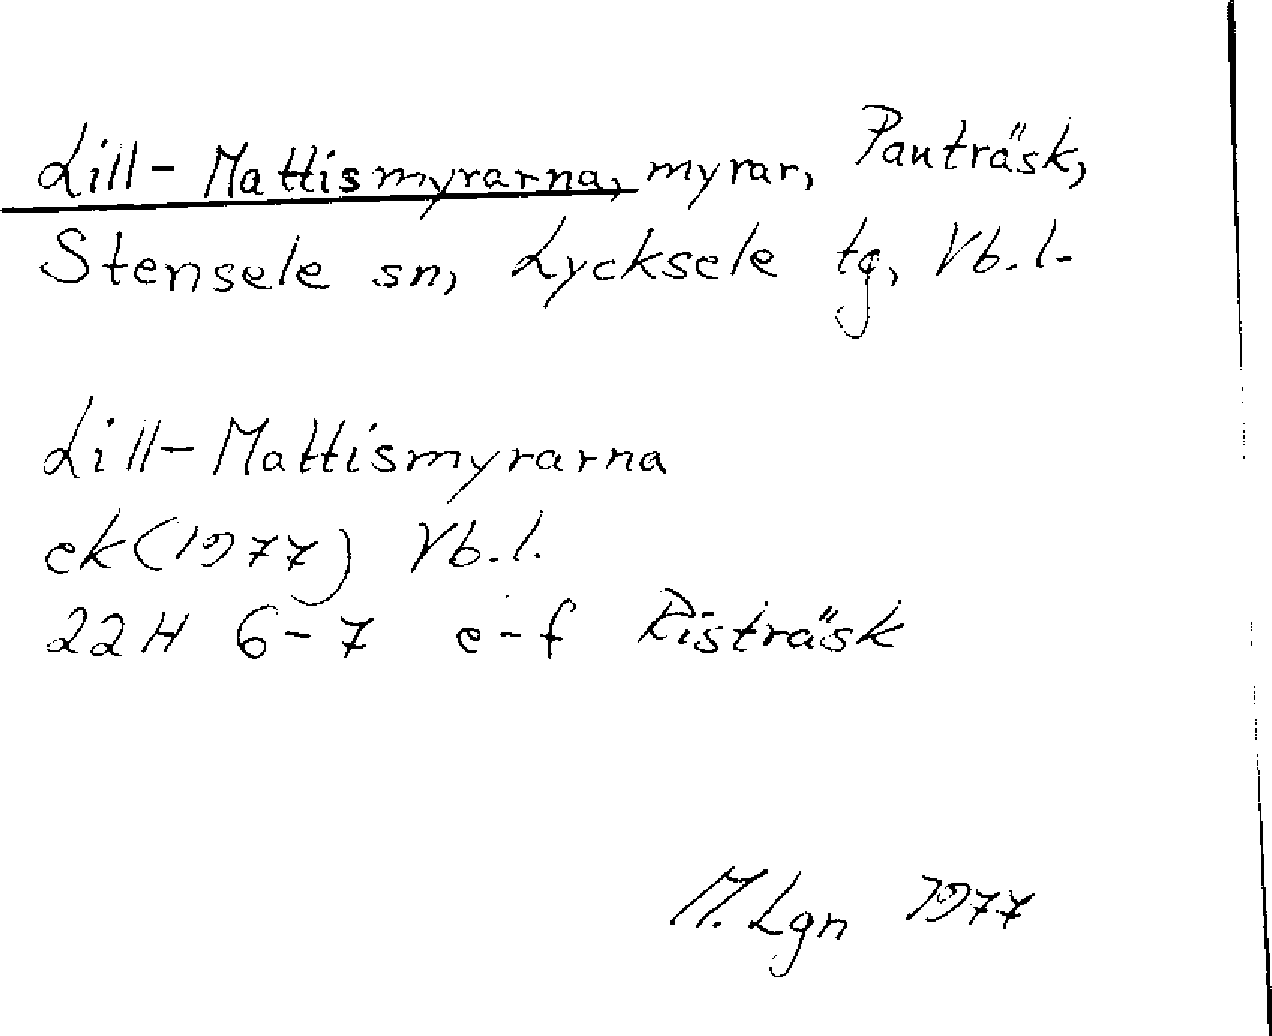 Lill-Mattismyrarna, myrar, Pauträsk,
Stensele sn, Lycksele tg, Vb. l.
Lill-Mattismyrarna
ek (1977) Vb. l.
22H 6-7 e-f Risträsk
M. Lgn 1977